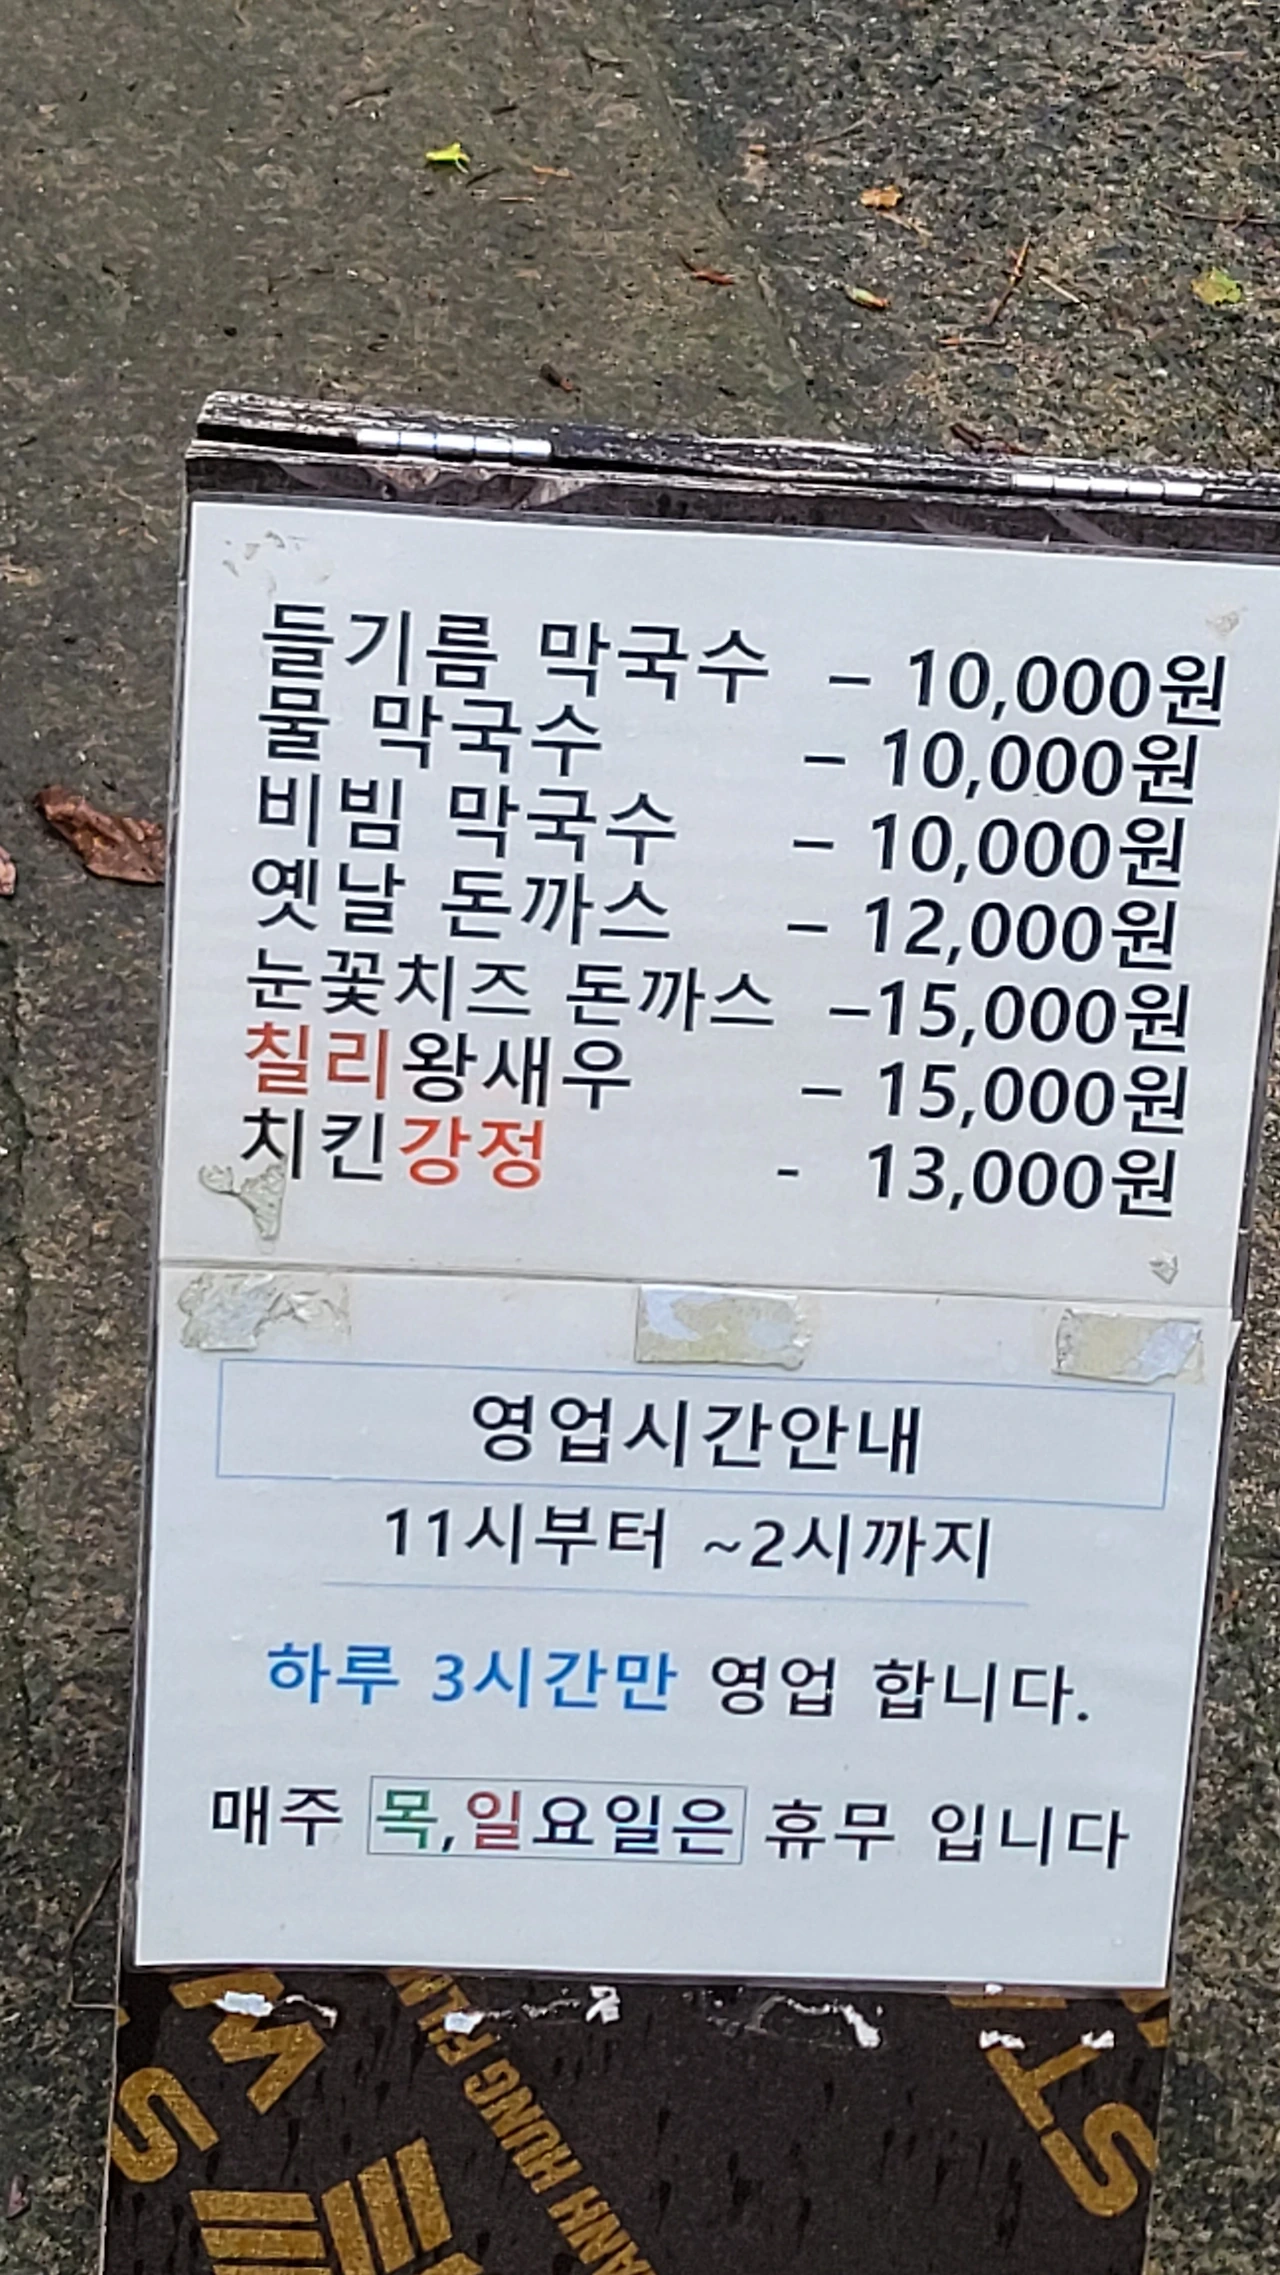 들기름 막국수 – 10,000원
물 막국수 – 10,000원
비빔 막국수 – 10,000원
옛날 돈까스 – 12,000원
눈꽃치즈 돈까스 –15,000원
칠리왕새우 – 15,000원
치킨강정 - 13,000원
영업시간안내
11시부터 ~2시까지
하루 3시간만 영업 합니다.
매주 목,일요일은 휴무 입니다
ANH HUNG FILM
TS